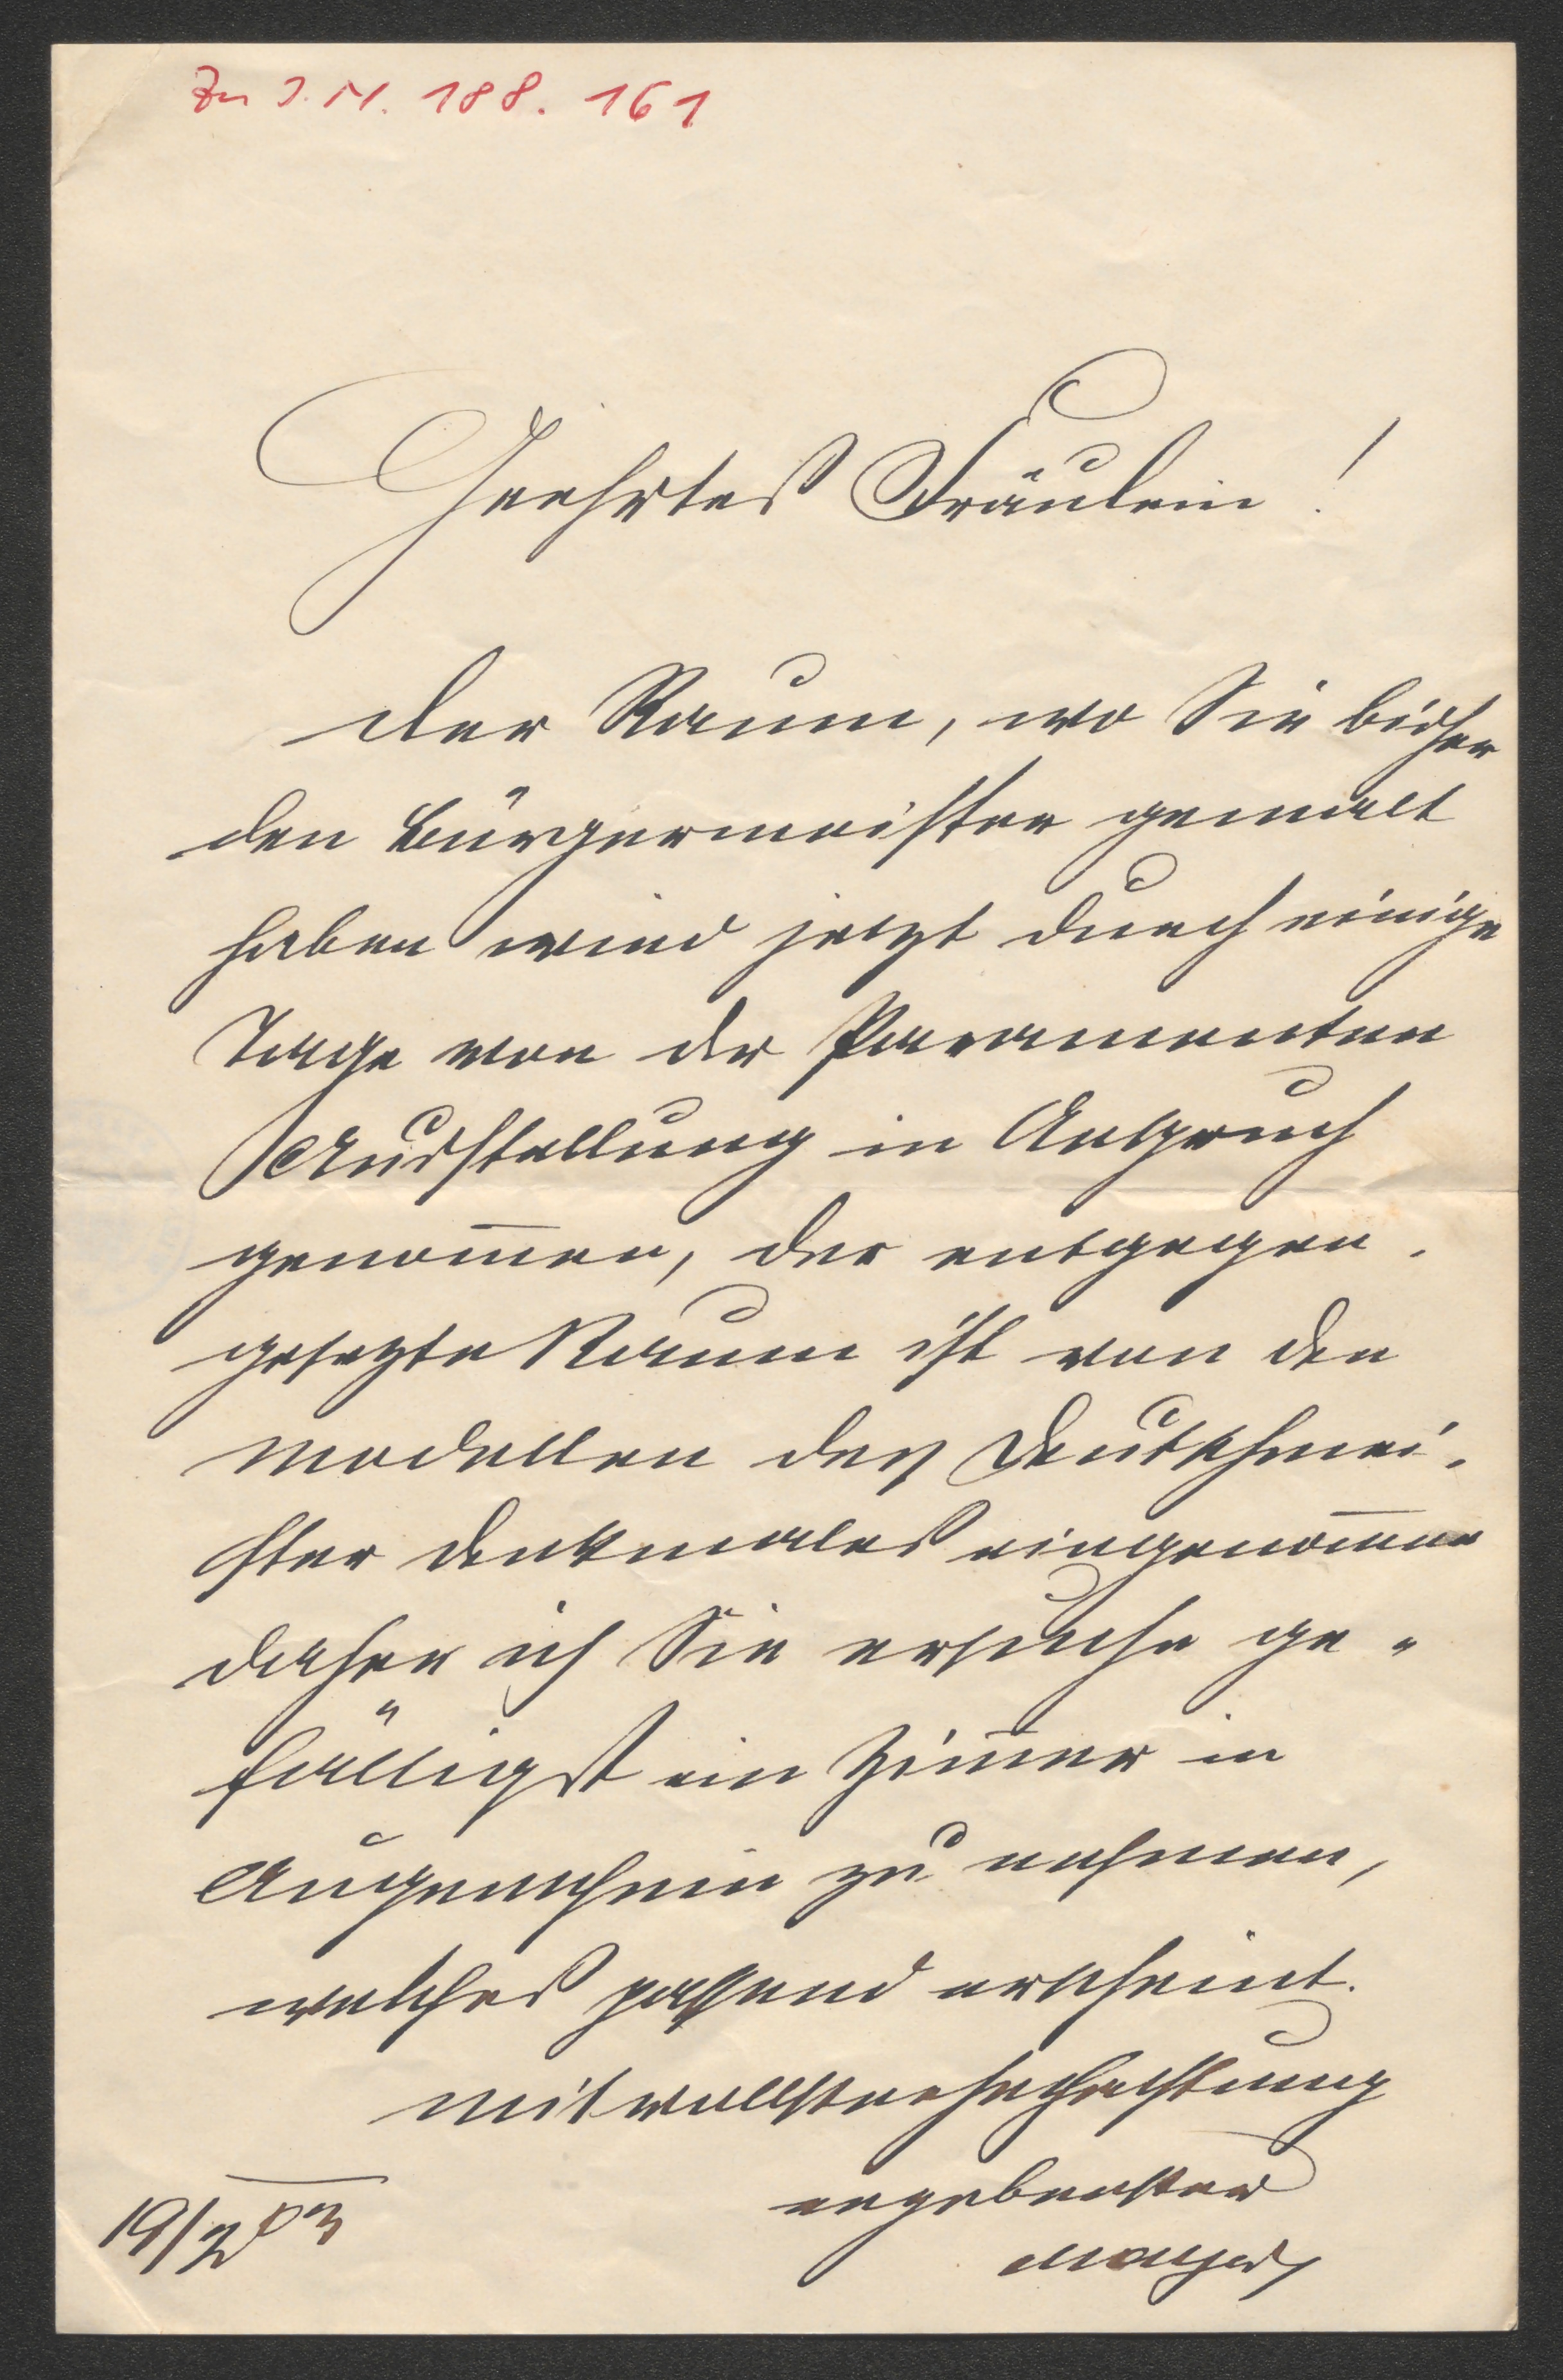 Zu I.N. 188.161
Geehrtes Fräulein!
Der Raum, wo Sie bisher
den Bürgermeister gemalt
haben wird jetzt durch einige
Tage von der Paramenten
Ausstellung in Anspruch
genom̅en, der entgegen-
gesetzte Raum ist von den
Modellen des Deutschmei-
ster Denkmales eingenom̅en
daher ich Sie ersuche ge-
fälligst ein Zim̅er in
Augenschein zu nehmen,
welches passend erscheint.
Mit vollster Hochachtung
ergebenster
19/2 03